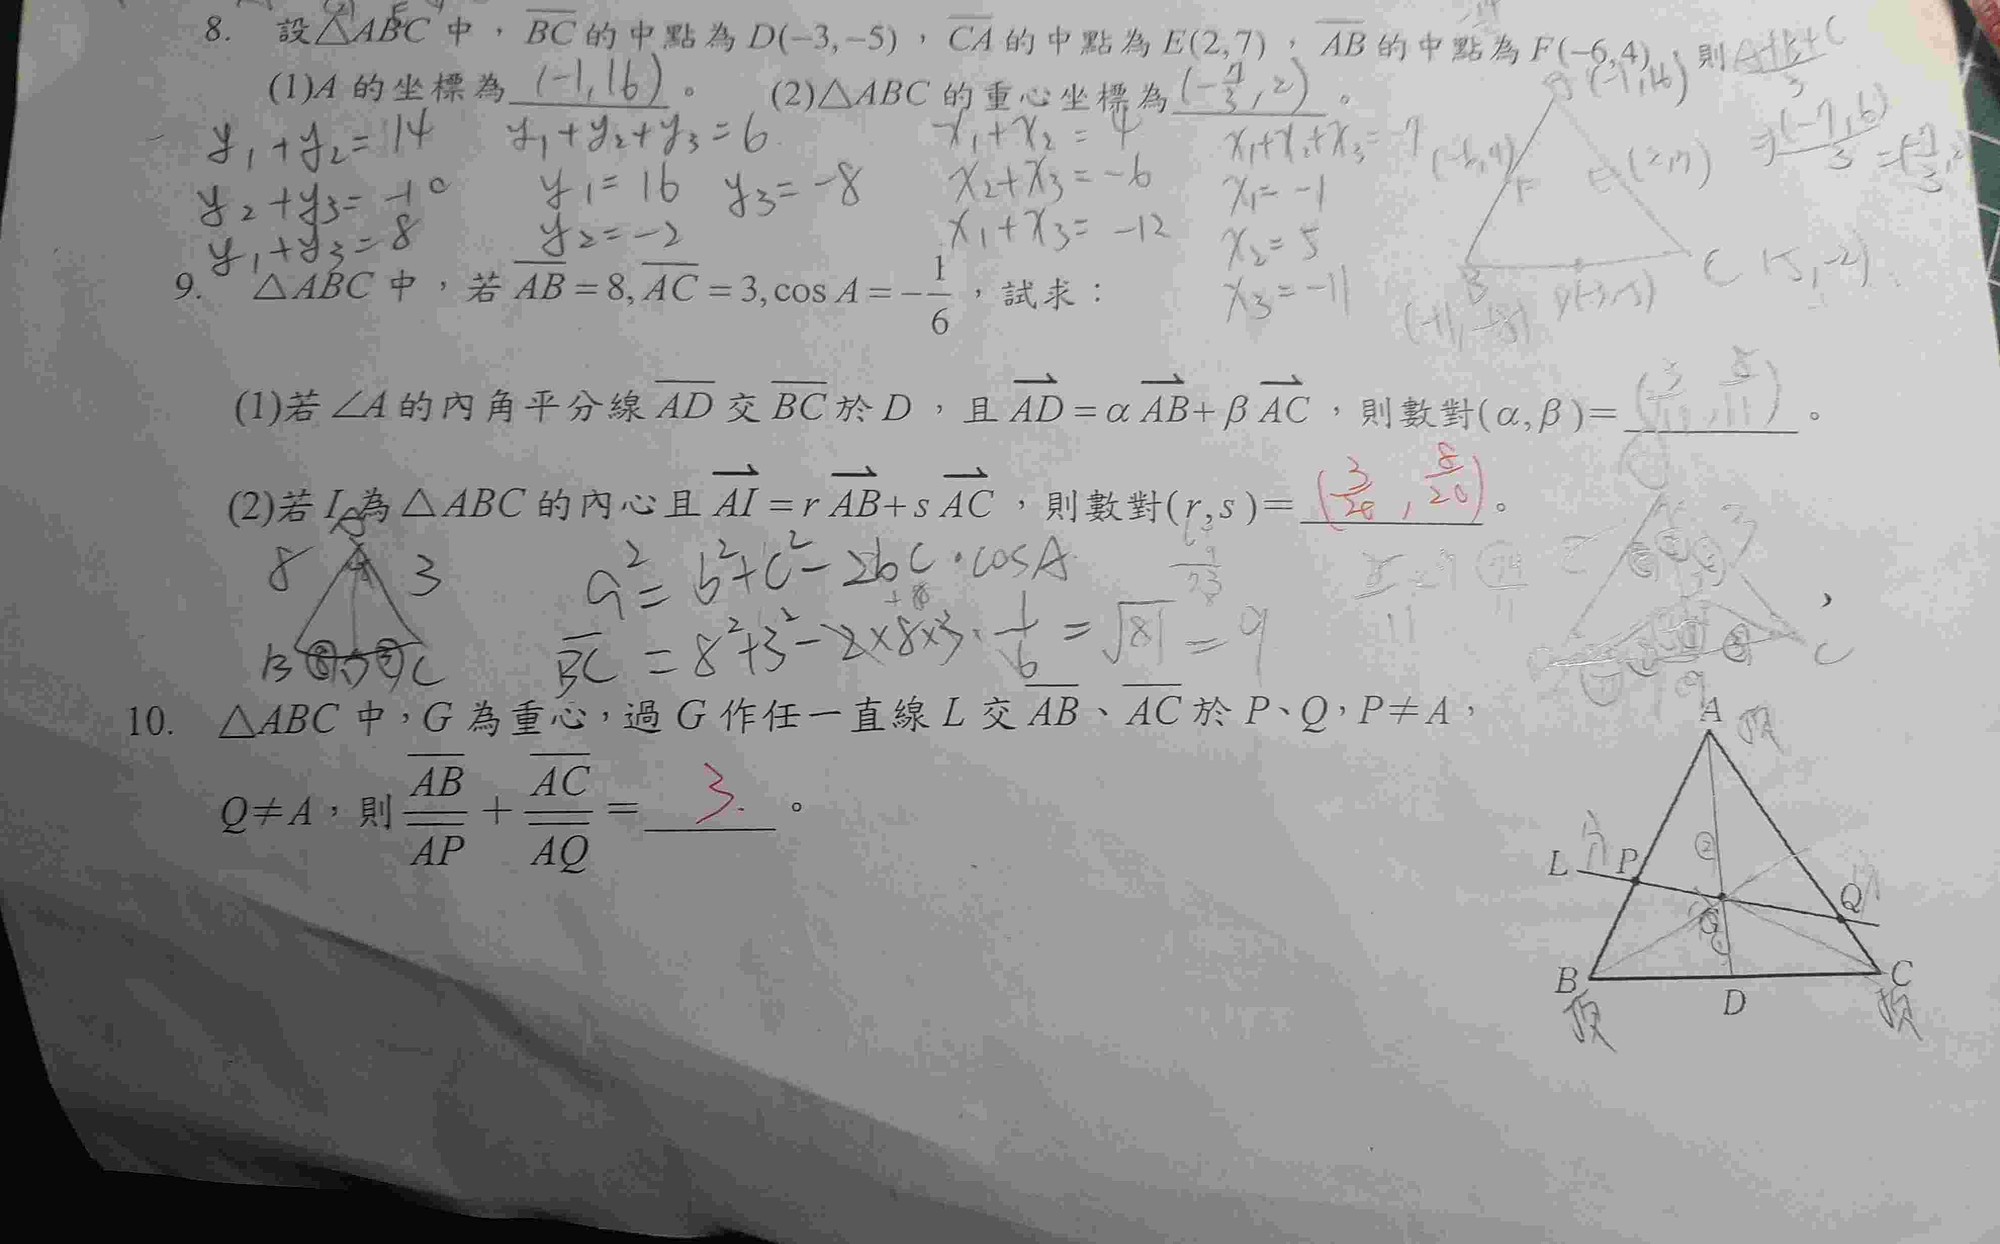 8. 設△ABC 中，BC 的中點為 D(−3,−5)，CA 的中點為 E(2,7)，AB 的中點為 F(−6,4)，則
(1)A 的坐標為 (-1,16)。 (2)△ABC 的重心坐標為 (-7/3, 2)。
y₁+y₂=14 y₁+y₂+y₃=6 x₁+x₂=4 x₁+x₂+x₃=-7
y₂+y₃=-10 y₁=16 y₃=-8 x₂+x₃=-6 x₁=-1
y₁+y₃=8 y₂=-2 x₁+x₃=-12 x₂=5
x₃=-11
A+B+C/3
⇒(-7,6)/3=(-7/3,2
(-1,16)
(-6,4) F E (2,7)
B D(-3,-5) C (5,-2)
9. △ABC 中，若 AB=8, AC=3, cos A=−1/6，試求：
(1)若∠A 的內角平分線 AD 交 BC 於 D，且 AD=αAB+βAC，則數對(α,β)= (3/11, 8/11)。
(2)若 I 為△ABC 的內心且 AI=rAB+sAC，則數對(r,s)= (3/20, 8/20)。
8 A 3
B ⑧ D ③ C
a²=b²+c²-2bc·cosA
BC=8²+3²-2×8×3·1/6=√81=9
10. △ABC 中，G 為重心，過 G 作任一直線 L 交 AB、AC 於 P、Q，P≠A，
Q≠A，則 AB/AP + AC/AQ = 3.。
A 頂
②
L P
G Q
B D C
頂 頂